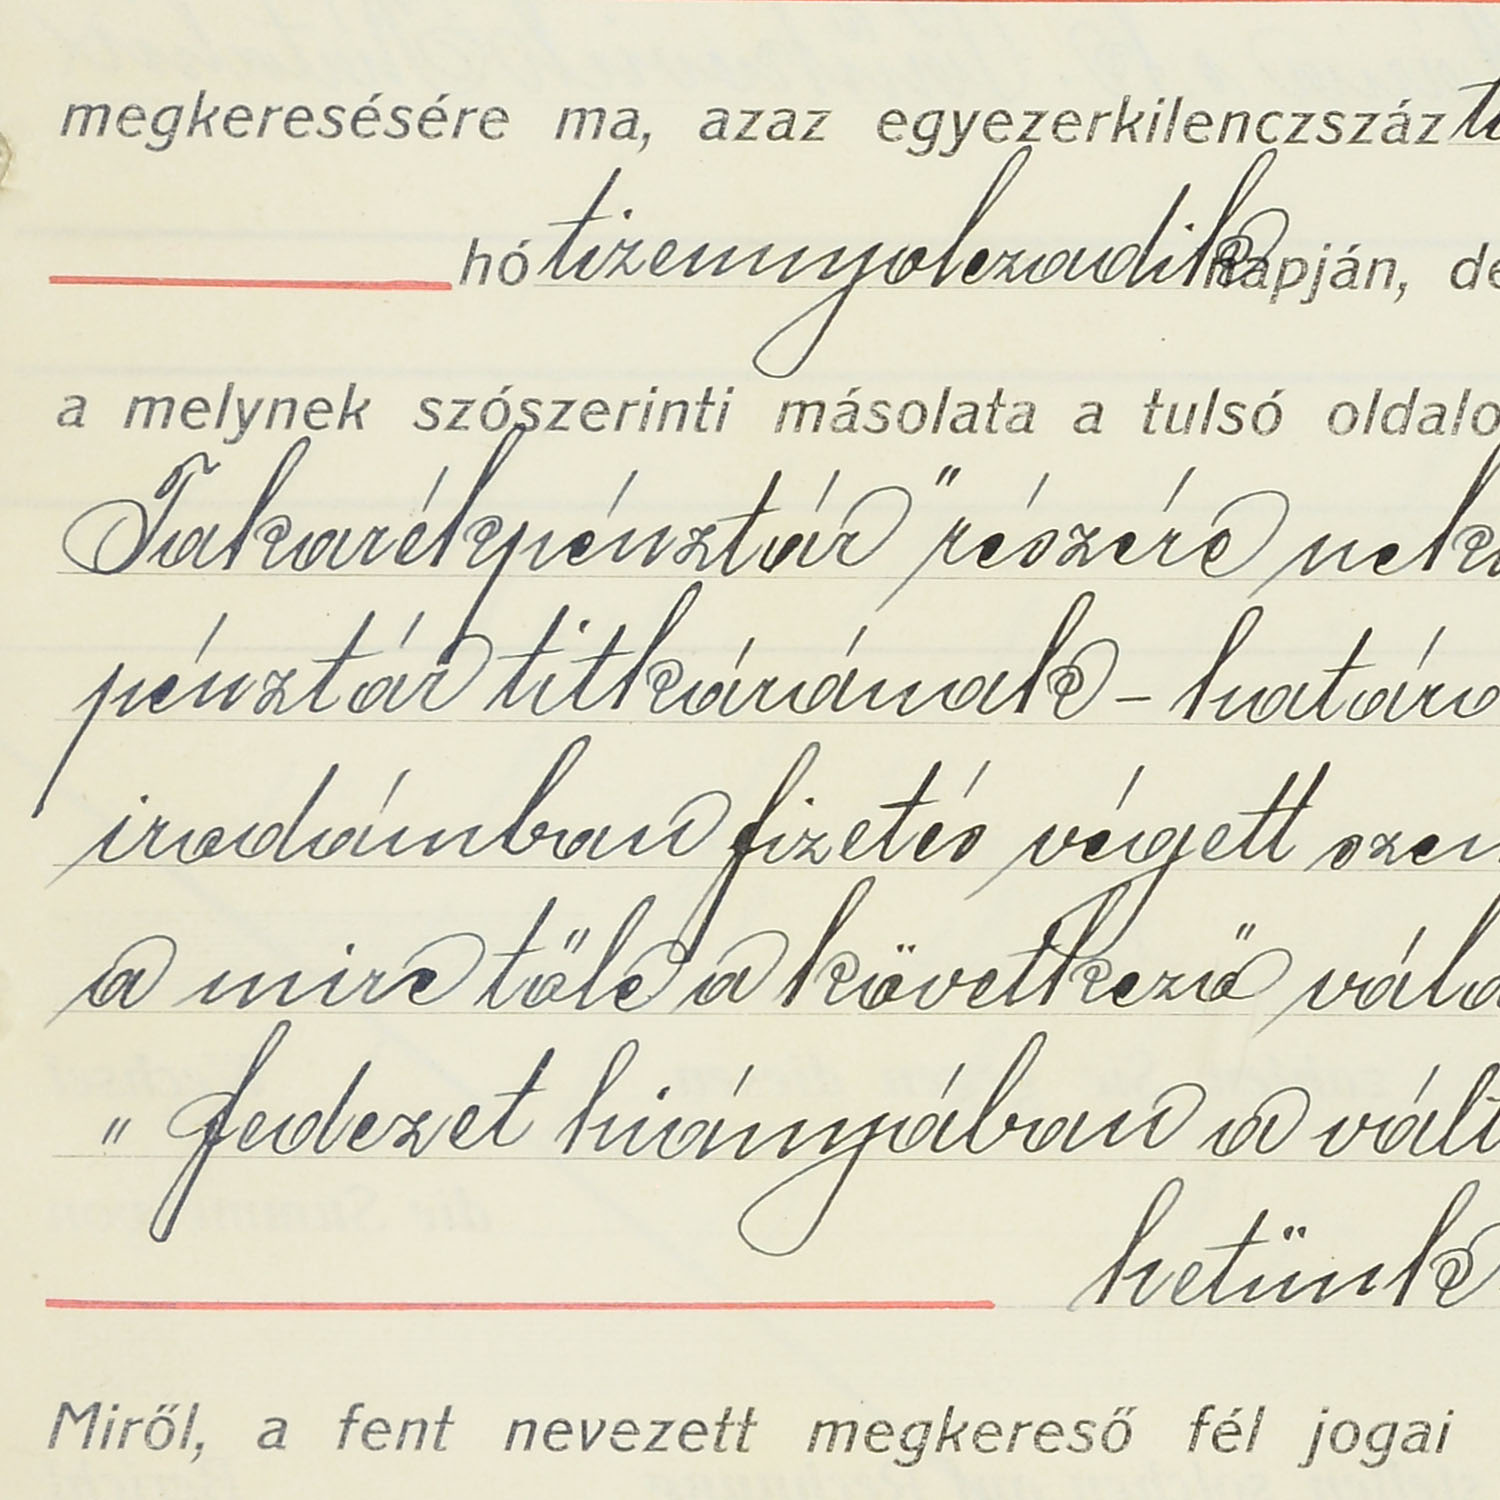 megkeresésére ma, azaz egyezerkilenczszáz
hó tizennyolczadik napján,
a melynek szószerinti másolata a tulsó
Takarékpénztár" részére
pénztár titkárának -
irodámban fizetés végett
a mire tőle a következő
„ fedezet hiányában a
hetünk
Miről, a fent nevezett megkereső fél jogai